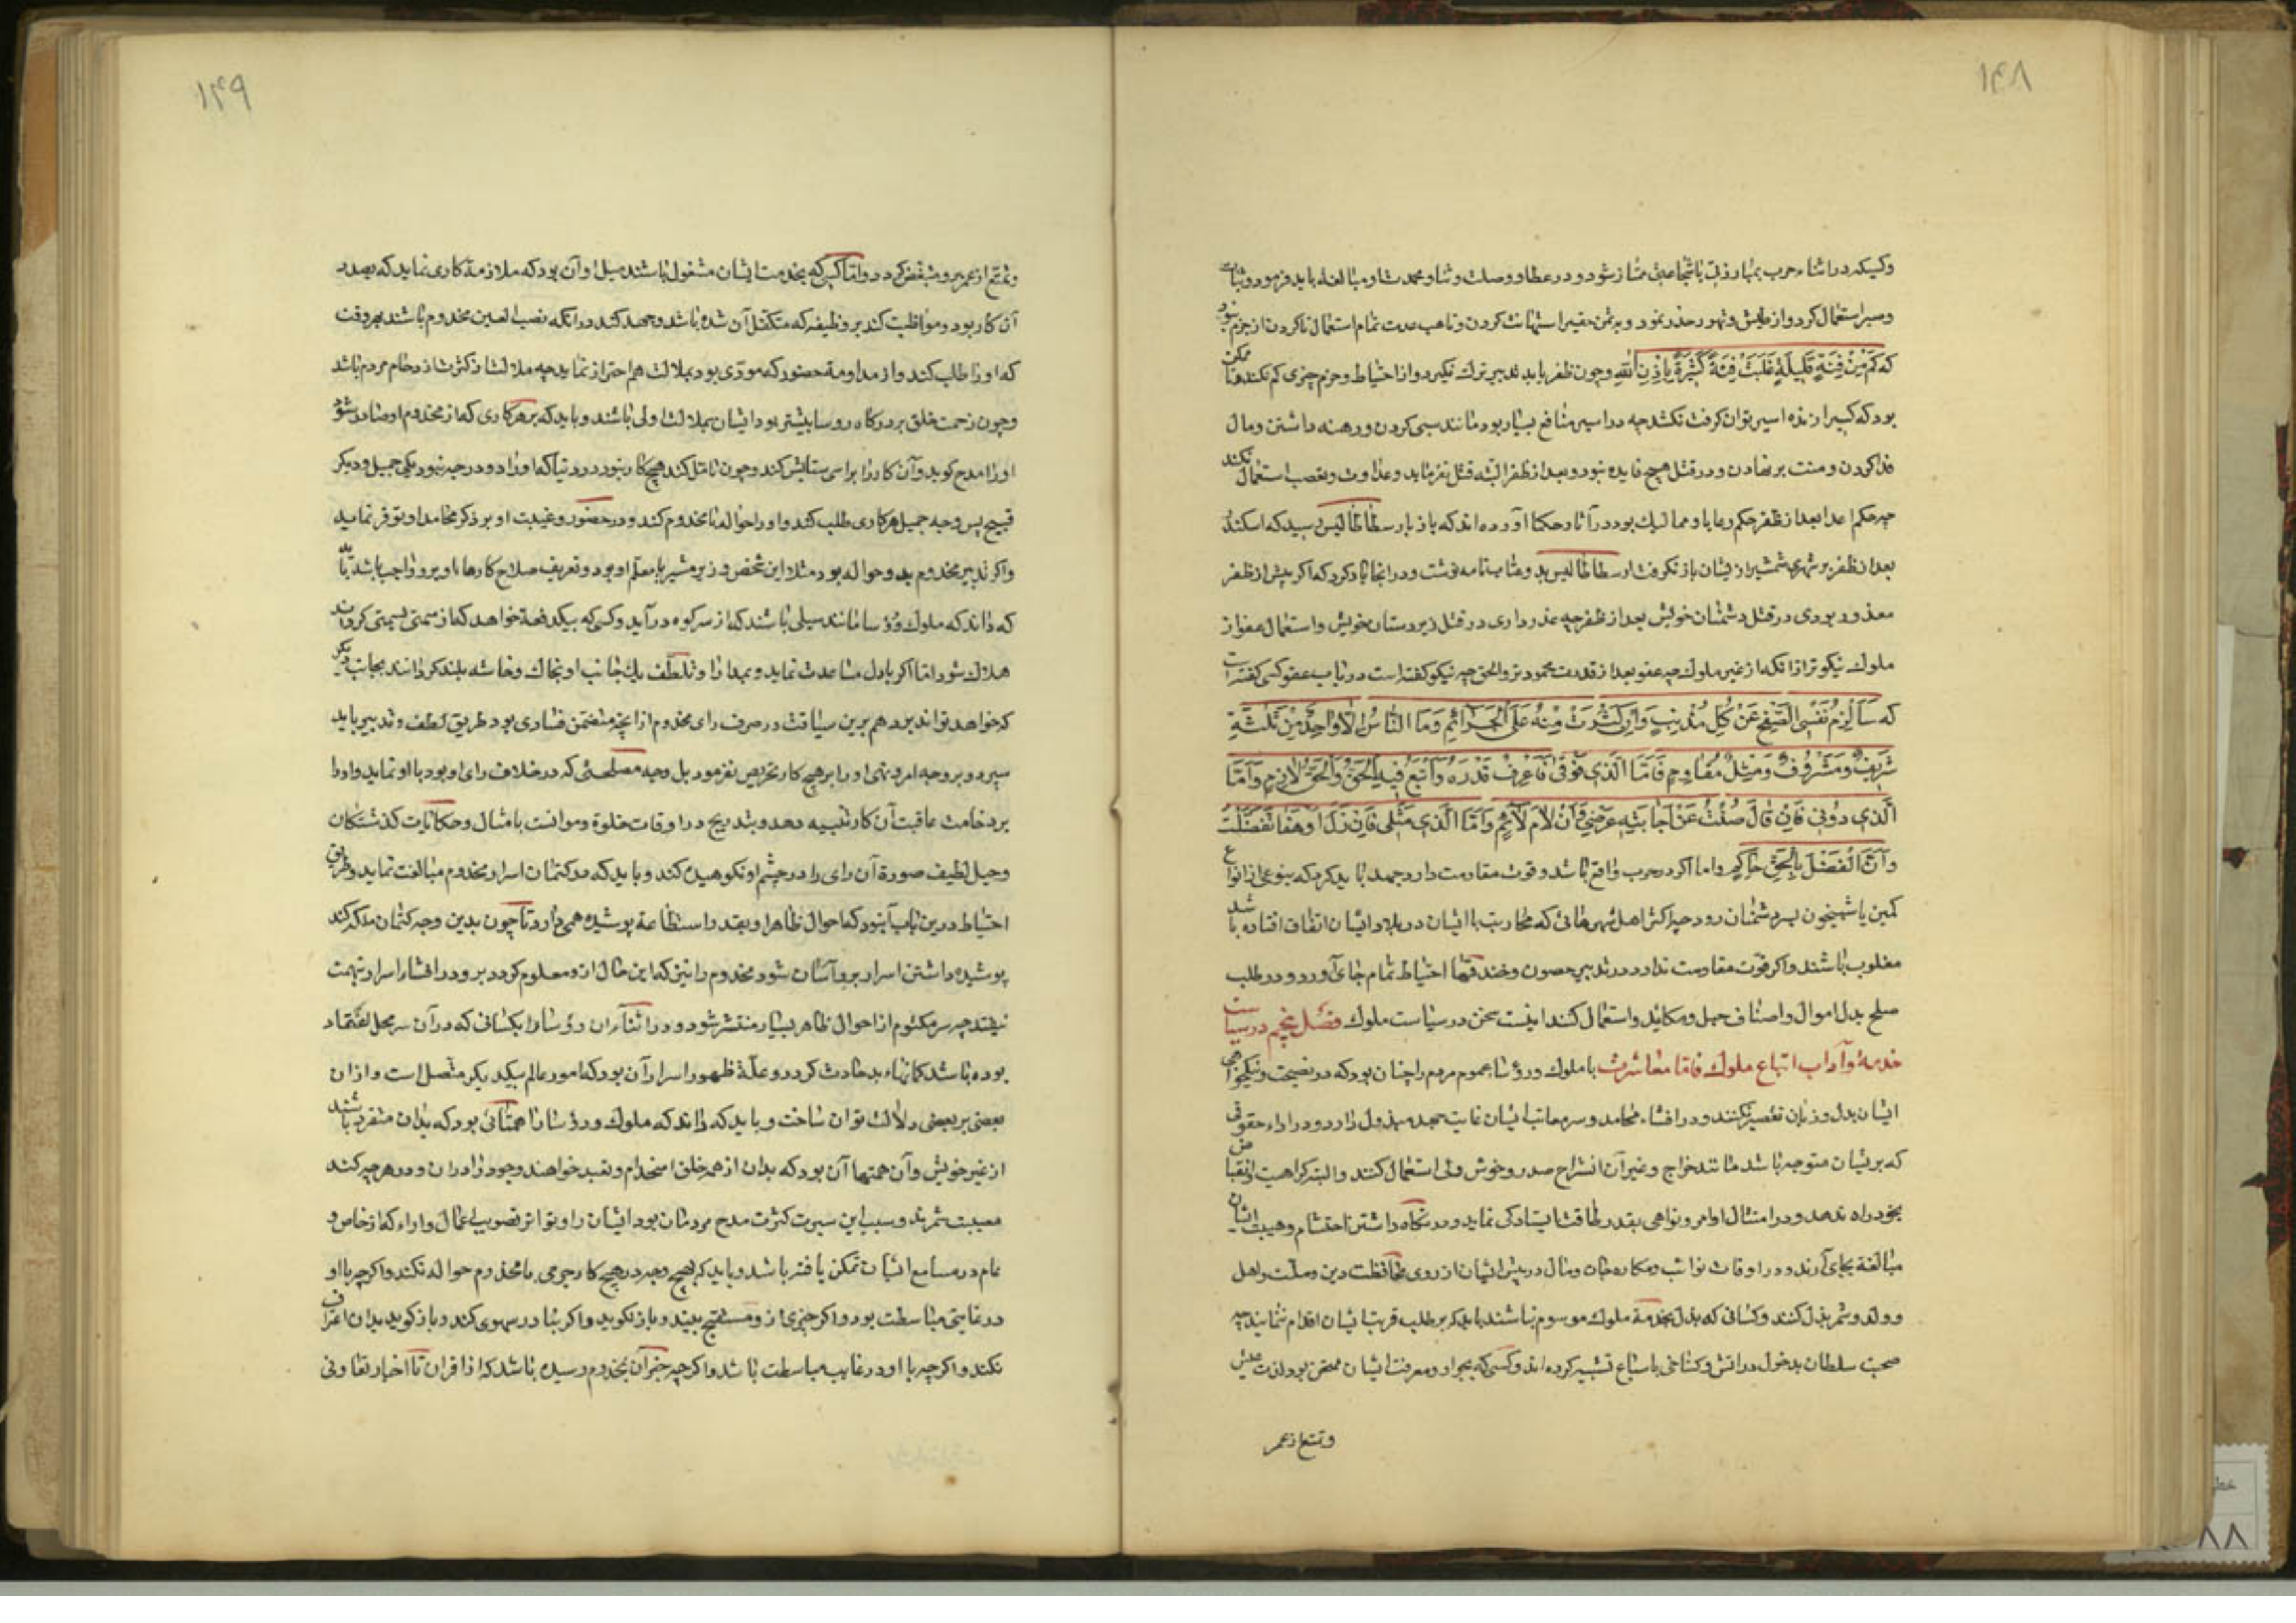 ۱۴۸
وکسیکه در اثناء حرب بمبارزتی یا شجاعتی ممتاز شود و در عطا و وصلت و ثنا و محمدت او مبالغه باید فرمود و ثبات
و صبر استعمال کرد و از طیش و تهور حذر نمود و بدشمن حقیر استهانت کردن و تاهب عدت تمام استعمال ناکردن از حزم نبود
که کَم مِن فِئَةٍ قَلِیلَةٍ غَلَبَت فِئَةً کَثِیرَةً بِاِذنِ اللهِ و چون ظفر یابد تدبیر ترک نگیرد و از احتیاط و حزم چیزی کم نکند و تا ممکن
بود که کسی را زنده اسیر توان گرفت نکشد چه در اسیر منافع بسیار بود مانند سبی کردن و رهنه داشتن و مال
فدا کردن و منت بر نهادن و در قتل هیچ فایده نبود و بعد از ظفر البته قتل نفرماید و عداوت و تعصب استعمال نکند
چه حکم اعدا بعد از ظفر حکم رعایا و ممالیک بود در آثار حکما آورده اند که بار سطاطالیس رسید که اسکندر
بعد از ظفر بر شهری شمشیر از یشان باز نگرفت ارسطاطالیس بدو عتاب نامه نوشت و در انجا یاد کرد که اگر پیش از ظفر
معذور بودی در قتل دشمنان خویش بعد از ظفر چه عذر داری در قتل زیردستان خویش و استعمال عفو از
ملوک نیکوتر از انکه از غیر ملوک چه عفو بعد از قدرت محمودتر والحق چه نیکو گفته است در باب عفو کسی گفته است
که سَاُلزِمُ نَفسِی الصَّفحَ عَن کُلِّ مُذنِبٍ وَاِن کَثُرَت مِنهُ عَلَیَّ الجَرَائِمُ وَمَا النَّاسُ اِلَّا وَاحِدٌ مِن ثَلثَةٍ
شَرِیفٌ وَمَشرُوفٌ وَمِثلٌ مُقَاوِمٌ فَاَمَّا الَّذِی فَوقِی فَاَعرِفُ قَدرَهُ وَاَتبَعُ فِیهِ الحَقَّ وَالحَقُّ لَازِمٌ وَاَمَّا
الَّذِی دُونِی فَاِن قَالَ صُنتُ عَن اِجَابَتِهِ عِرضِی وَاِن لَامَ لَائِمٌ وَاَمَّا الَّذِی مِثلِی فَاِن زَلَّ اَو هَفَا تَفَضَّلتُ
وَاِنَّ الفَضلَ بِالحَقِّ حَاکِمٌ واما اگر در حرب دافع باشد و قوت مقاومت دارد جهد باید کرد که بنوعی از انواع
کمین یا شبیخون بسر دشمنان رود چه اکثر اهل شهرهائی که محاربت با ایشان در بلاد ایشان اتفاق افتاده باشد
مغلوب باشند و اگر قوت مقاومت ندارد در تدبیر حصون و خندقها احتیاط تمام بجای آورد و در طلب
صلح بذل اموال و اصناف حیل و مکاید و استعمال کند اینست سخن در سیاست ملوک فصل پنجم در سیاست
خدمة و آداب اتباع ملوک فاما معاشرت با ملوک و رؤسا عموم مردم را چنان بود که در نصیحت و نیکخواهی
ایشان بدل و زبان تقصیر نکنند و در افشاء محامد و ستر معایب ایشان غایت جهد مبذول دارد و در اداء حقوقی
که بر یشان متوجه باشد مانند خراج و غیر آن انشراح صدر و خوش دلی استعمال کنند و البته کراهیت و انقباض
بخود راه ندهد و در امتثال اوامر و نواهی بقدر طاقت ایستادگی نماید و در نگاه داشتن احتشام و هیبت ایشان
مبالغة بجای آرند و در اوقات نوائب و مکاره جان و مال در پیش ایشان از روی محافظت دین و ملت و اهل
و ولد و شهر بذل کنند و کسانی که بذل بخدمة ملوک موسوم نباشند باید که بر طلب قربت ایشان اقدام ننمایند چه
صحبت سلطان بدخول در اتش و گستاخی با سباع تشبیه کرده اند و کسی که بجوار و معرفت ایشان ممتحن بود لذت عیش
و تمتع از عمر
۱۴۹
و تمتع از عمر برو منغص گردد و اما کسی که بخدمت ایشان مشغول باشند سبیل او آن بود که ملازمة کاری نماید که بصدد
آن کار بود و مواظبت کند بر وظیفه که متکفل آن شده باشد و جهد کند در انکه نصب العین مخدوم باشند بهر وقت
که او را طلب کند و از مداومة حضور که مودی بود بملالت هم احتراز نماید چه ملالت از کثرت ازدحام مردم باشد
و چون زحمت خلق بر درگاه رؤسا بیشتر بود ایشان بملالت اولی باشند و باید که بر هر کاری که از مخدوم او صادر شود
او را مدح گوید و آن کار را براستی ستایش کند و چون تامل کند هیچ کار نبود در دنیا که او را دو وجه نبود یکی جمیل و دیگر
قبیح پس وجه جمیل هر کاری طلب کند و او را حواله با مخدوم کند و در حضور و غیبت او بر ذکر محامد او توفر نماید
و اگر تدبیر مخدوم بدو حواله بود مثلا این شخص وزیر مشیر یا معلم او بود و تعریف صلاح کارها او برو واجب باشد باید
که داند که ملوک و رؤسا مانند سیلی باشند که از سر کوه درآید و کسی که بیکدفعة خواهد که از سمتی بسمتی گرداند
هلاک شود اما اگر باول مساعدت نماید و بمدارا و تلطف یک جانب او بخاک و خاشه بلند گرداند بجانب دیگر
که خواهد تواند برد هم برین سیاقت در صرف رای مخدوم از انچه متضمن فسادی بود طریق لطف و تدبیر باید
سپرد و بر وجه امر و نهی او را بر هیچ کار تحریص نفرمود بل وجه مصلحتی که در خلاف رای او بود با او نماید و او را
بر وخامت عاقبت آن کار تنبیه دهد و بتدریج در اوقات خلوة و موانست بامثال و حکایات گذشتگان
و حیل لطیف صورة آن رای را در چشم او نکوهیده کند و باید که در کتمان اسرار مخدوم مبالغت نماید و طریق
احتیاط درین باب آن بود که احوال ظاهر او بقدر استطاعة پوشیده همی دارد تا چون بدین وجه کتمان ملکه کند
پوشیده داشتن اسرار برو آسان شود مخدوم را نیز که این حال ازو معلوم گردد برو در افشاء اسرار تهمت
نیفتد چه سر مکتوم از احوال ظاهر بسیار منتشر شود و در اثناء آن رؤسا را بکسانی که در آن سر محل اعتماد
بوده باشند گمانهاء بد حادث گردد و علة ظهور اسرار آن بود که امور عالم بیکدیگر متصل است و ازان
بعضی بر بعضی دلالت توان ساخت و باید که داند که ملوک و رؤسا را همتهائی بود که بدان منفرد باشند
از غیر خویش و آن همتها آن بود که بدان از همه خلق استخدام و تعبد خواهند و خود را دران و در هر چه کنند
مصیبت شمرند و سبب این سیرت کثرت مدح مردمان بود ایشان را و تواتر تصویب اعمال و آراء که از خاص و
عام در مسامع ایشان تمکن یافته باشد و باید که بهیچ وجه در هیچ کار جرمی با مخدوم حواله نکند و اگر چه با او
در غایتی مباسطت بود و اگر چیزی ازو مستقبح بیند و باز نگوید و اگر بنادر سهوی کند و باز گوید بدان اعتراف
نکند و اگر چه با او در غایت مباسطت باشد و اگر چه خبر آن بمخدوم رسیده باشد که از اقران تا اخبار تفاوتی